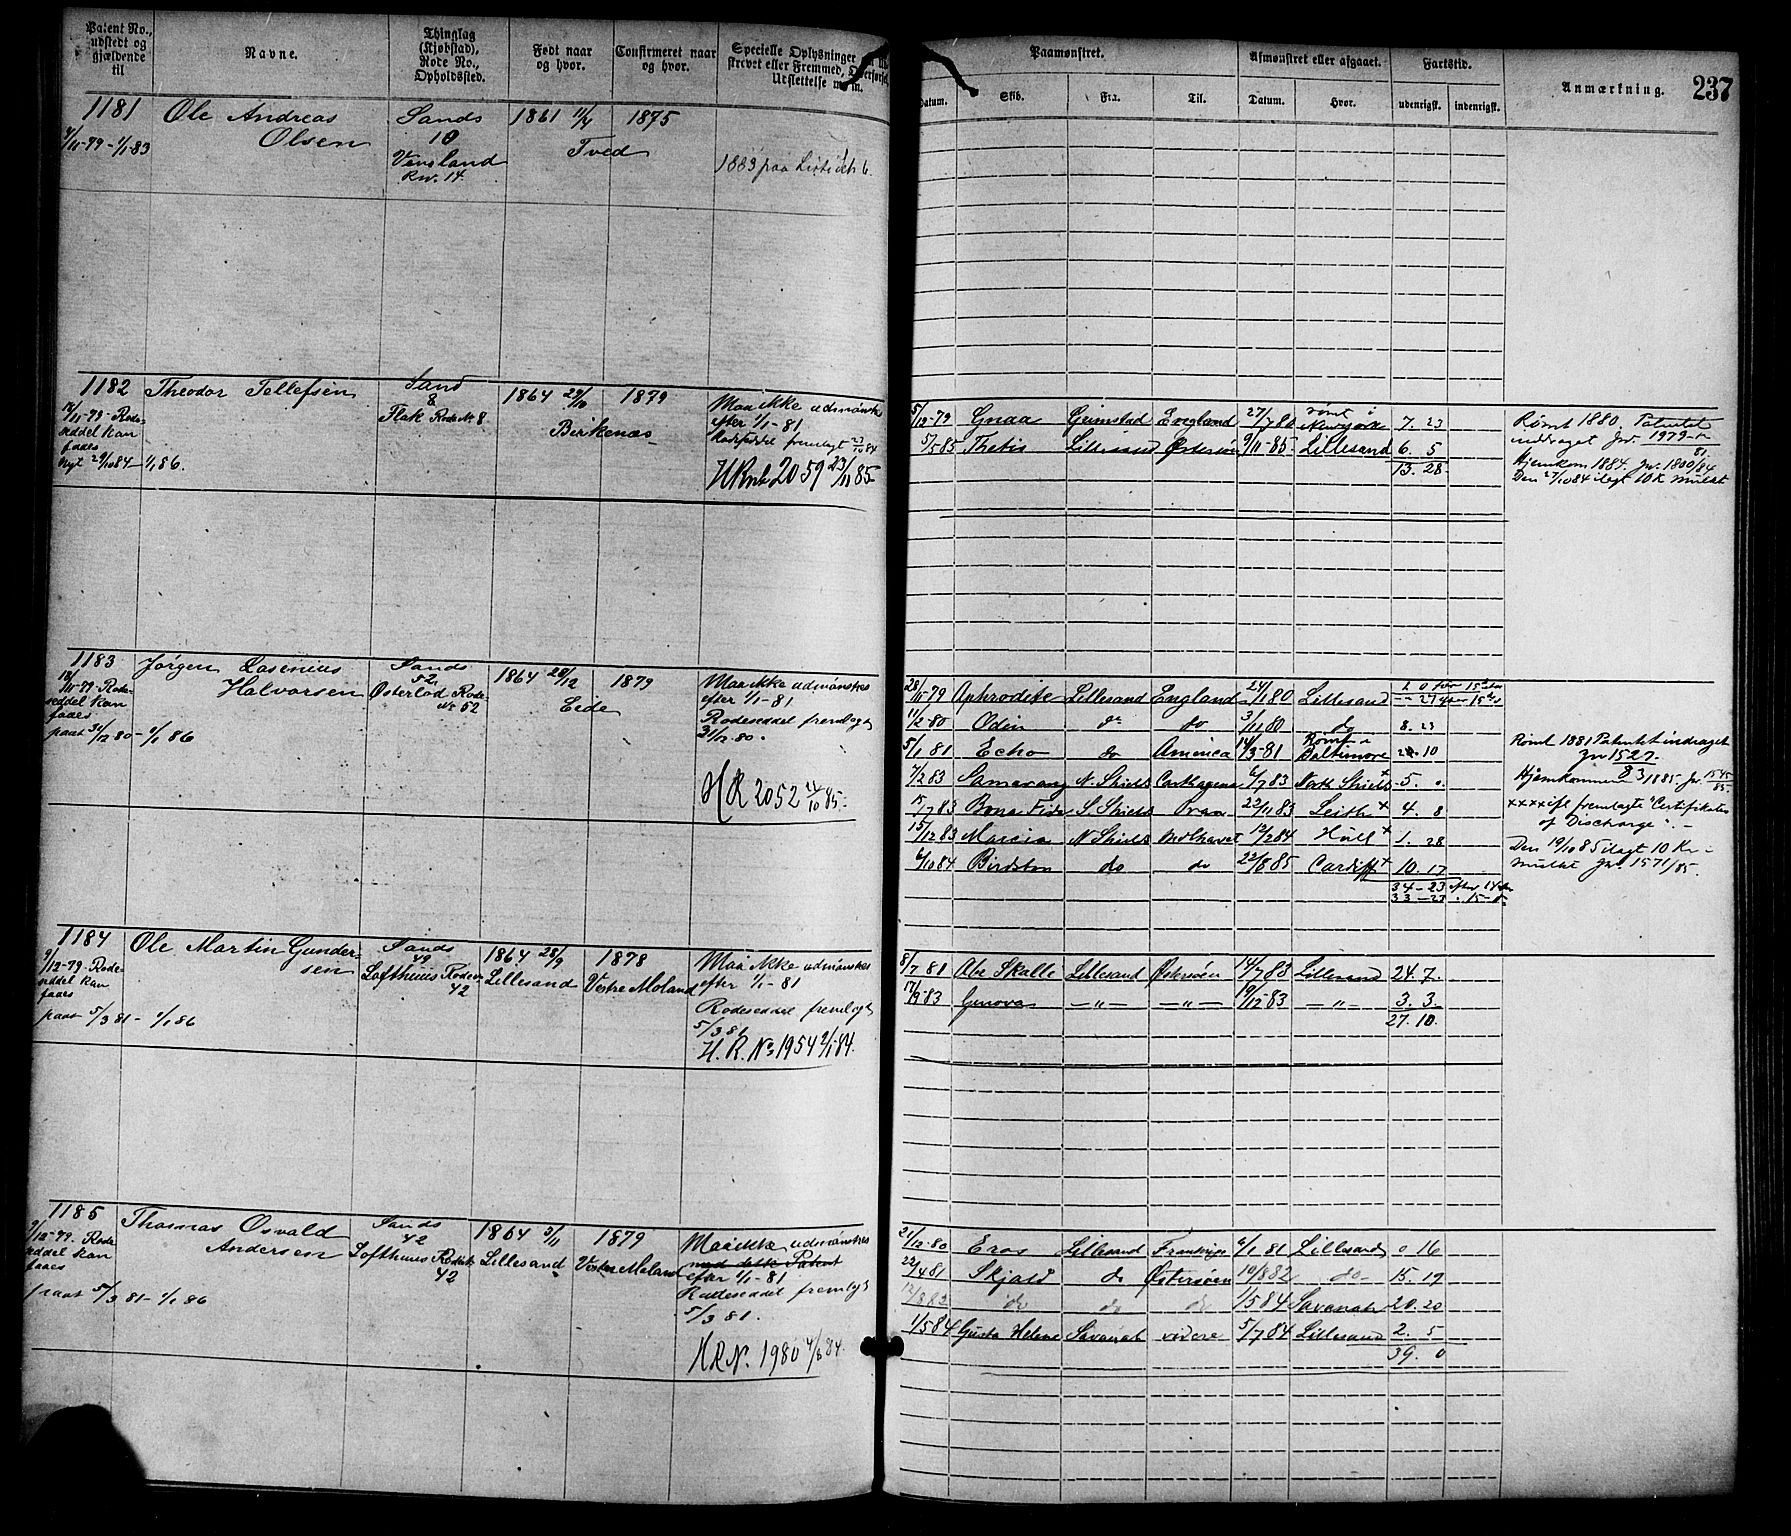 Patent No., udstedt og gjældende til
Navne.
Thinglag (Kjøbstad), Rode No., Opholdssted.
Født naar og hvor.
Confirmeret naar og hvor.
Specielle Oplysninger
Paamønstret.
Datum. Skib. Fra. Til.
Afmønstret eller afgaaet.
Datum. Hvor.
Fartstid.
udenrigsk. indenrigsk.
Anmærkning.
237
1181 Ole Andreas Olsen Sands 1861 11/4 1875
4/11-79-1/1-83 10 Tved
Vensland
Rw. 14
1883 paa Liste
1182 Theodor Tellefsen Sand 1864 29/10 1879 Maa ikke udmønstres
8 efter 1/1-81
Flak Rode N. 8 Birkenæs
11-79-Rode-
seddel kan
faaes
nyt 29/10 84-1/1 86.
Rodeseddel fremlagt 27/10 84
HR nt 2059 23/11 85
5/12-79 Gnaa Grimstad England 27/7 80 rømt i Newyork 7. 23
5/5 85 Thetis Lillesand Østersøen 9/11-85 Lillesand 6. 5
13. 28
Rømt 1880. Patentet
inddraget Jwr. 1979
81.
Hjemkom 1884. Jw. 1800/84
Den 27/10 84 ilagt 10 K Mulkt
1183 Jørgen Lasenius Sands 1864 28/12 1879 Maa ikke udmønstres
Halvorsen 52 efter 1/1-81
Østerlod Rode Eide
№ 52
18/11-79-Rode-
seddel kan
faaes
paat 31/12 80-1/1 86
Rodeseddel fremlagt
31/12 80.
HR 2052 24/10 85.
28/11-79 Aphrodite Lillesand England 24/1 80 Lillesand 2 0 før 15
11/2 80 Odin do do 3/11 80 do 8. 23
5/1 81 Echo do America 14/3-81 Rømt i Baltimore 10
7/2 83 Samarang N. Shields Carthagena 6/7 83 North Shields + 5. 0
15/7 83 Bona Fide S. Shields Oran 22/11 83 Leith + 4. 8
15/12 83 Marcia N Shields Midlhavet 12/2 84 Hull + 1. 28
6/10 84 Birdston do do 22/8 85 Cardiff + 10. 17
34-23 efter 14
33-23 " 15
Rømt 1881 Patentet indraget
Jw 1527.
Hjemkommen 23/1885. Jw. 1545/85.
xxxx ifl fremlagte "Certifikater
of Discharge". -
Den 19/10 85 ilagt 10 Kr -
Mulkt Jw. 1571/85.
1184 Ole Martin Gunder- Sands 1864 28/9 1878 Maa ikke udmønstres
sen 49 Lillesand Vestre Moland efter 1/1-81
Lofthuus Rode
42
9/12-79-Rode-
seddel kan
faaes
paat 5/3 81-1/1 86
Rodeseddel fremlagt
5/3 81
H. R. No 1954 9/1-84.
8/7 81 Abe Skalle Lillesand Østersøen 14/7 83 Lillesand 24. 7.
17/9-83 Genova — " — — " — 19/12-83 — " — 3. 3.
27. 10.
1185 Thomas Osvald Sands 1864 3/11 1879 Maa ikke udmønstres
Andersen 42 Lillesand Vestre Moland med dette Patent
Lofthuus Rode efter 1/1-81
42
9/12-79. Rode-
seddel kan
faaes
paat 5/3 81-1/1 86
Rodeseddel fremlagt
5/3 81.
HRN. 1980 4/8 84.
21/12-80 Eros Lillesand Frankrige 6/1 81 Lillesand 0 16
22/4 81 Skjold do Østersøen 10/8 82 do 15. 19
do do do 1/5 84 Savanah 20. 20
1/5 84 Gusta Helene Savanah videre 5/7 84 Lillesand 2. 5
39. 0